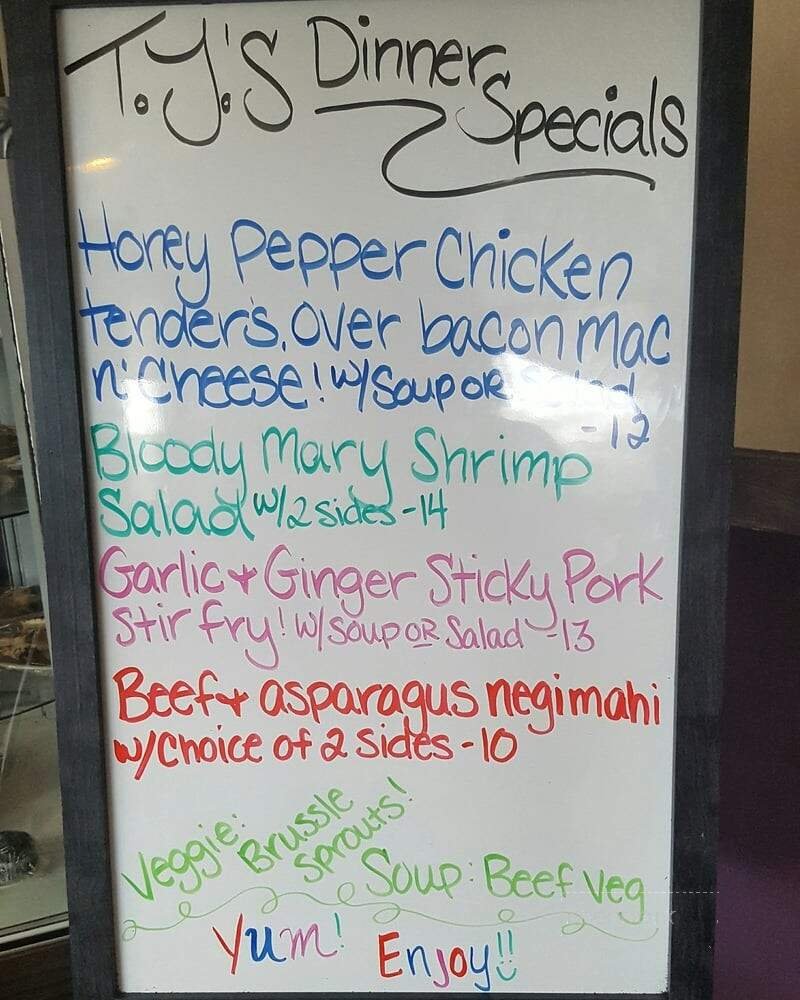 T.J.'S Dinner
Specials
Honey Pepper Chicken
tenders. over bacon Mac
n' Cheese! w/Soup OR Salad
-12
Bloody Mary Shrimp
Salad w/2 sides -14
Garlic + Ginger Sticky Pork
Stir fry! w/soup OR Salad -13
Beef + asparagus negimahi
w/Choice of 2 sides -10
Veggie: Brussle
Sprouts!
Soup: Beef Veg
Yum! Enjoy!!